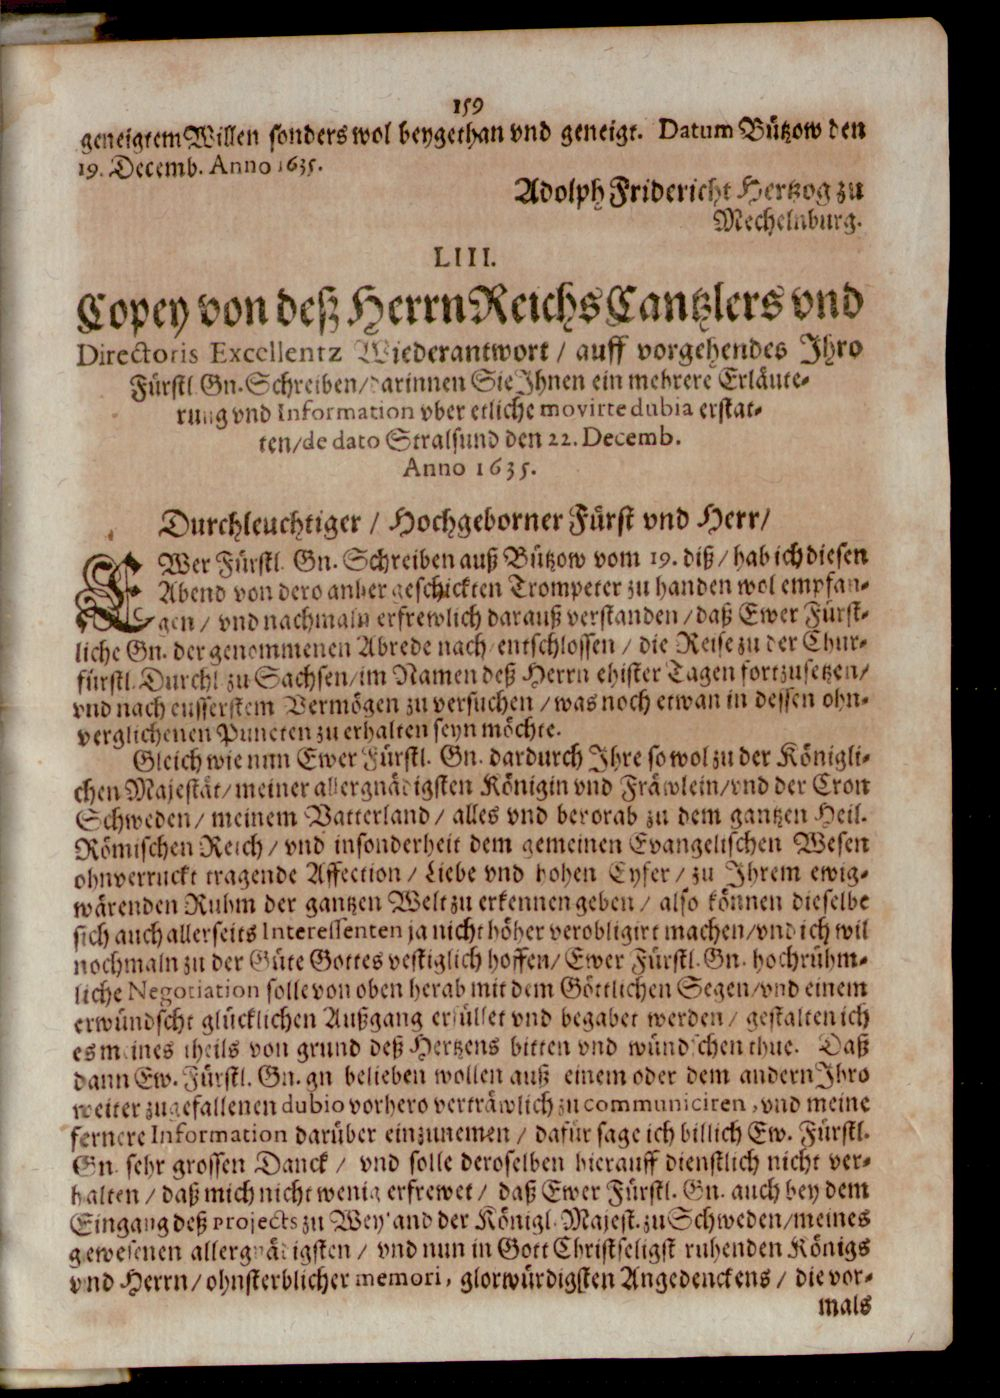 159
geneigtem Willen sonders wol beygethan vnd geneigt. Datum Bützow den
19. Decemb. Anno 1635.
Adolph Fridericht Hertzog zu
Mechelnburg.
LIII.
Copey von deß Herrn Reichs Cantzlers vnd
Directoris Excellentz Wiederantwort / auff vorgehendes Ihro
Fürstl. Gn. Schreiben / darinnen Sie Ihnen ein mehrere Erläute-
rung vnd Information vber etliche movirte dubia erstat-
ten / de dato Stralsund den 22. Decemb.
Anno 1635.
Durchleuchtiger / Hochgeborner Fürst vnd Herr /
EWer Fürstl. Gn. Schreiben auß Bützow vom 19. diß / hab ich diesen
Abend von dero anher geschickten Trompeter zu handen wol empfan-
gen / vnd nachmaln erfrewlich darauß verstanden / daß Ewer Fürst-
liche Gn. der genommenen Abrede nach entschlossen / die Reise zu der Chur-
fürstl. Durchl. zu Sachsen / im Namen deß Herrn ehister Tagen fortzusetzen /
vnd nach eusserstem Vermögen zu versuchen / was noch etwan in dessen ohn-
verglichenen Puncten zu erhalten seyn möchte.
Gleich wie nun Ewer Fürstl. Gn. dardurch Ihre so wol zu der Königli-
chen Majestät / meiner allergnädigsten Königin vnd Fräwlein / vnd der Cron
Schweden / meinem Vatterland / alles vnd bevorab zu dem gantzen Heil.
Römischen Reich / vnd insonderheit dem gemeinen Evangelischen Wesen
ohnverruckt tragende Affection / Liebe vnd hohen Eyfer / zu Ihrem ewig-
wärenden Ruhm der gantzen Welt zu erkennen geben / also können dieselbe
sich auch allerseits Interessenten ja nicht höher verobligirt machen / vnd ich wil
nochmaln zu der Güte Gottes vestiglich hoffen / Ewer Fürstl. Gn. hochrühm-
liche Negotiation solle von oben herab mit dem Göttlichen Segen / vnd einem
erwündscht glücklichen Außgang erfüllet vnd begabet werden / gestalten ich
es meines theils von grund deß Hertzens bitten vnd wündschen thue. Daß
dann Ew. Fürstl. Gn. gn belieben wollen auß einem oder dem andern Ihro
weiter zugefallenen dubio vorhero verträwlich zu communiciren, vnd meine
fernere Information darüber einzunemen / dafür sage ich billich Ew. Fürstl.
Gn. sehr grossen Danck / vnd solle deroselben hierauff dienstlich nicht ver-
halten / daß mich nicht wenig erfrewet / daß Ewer Fürstl. Gn. auch bey dem
Eingang deß projects zu Weyland der Königl. Majest. zu Schweden / meines
gewesenen allergnädigsten / vnd nun in Gott Christseligst ruhenden Königs
vnd Herrn / ohnsterblicher memori, glorwürdigsten Angedenckens / die vor-
mals